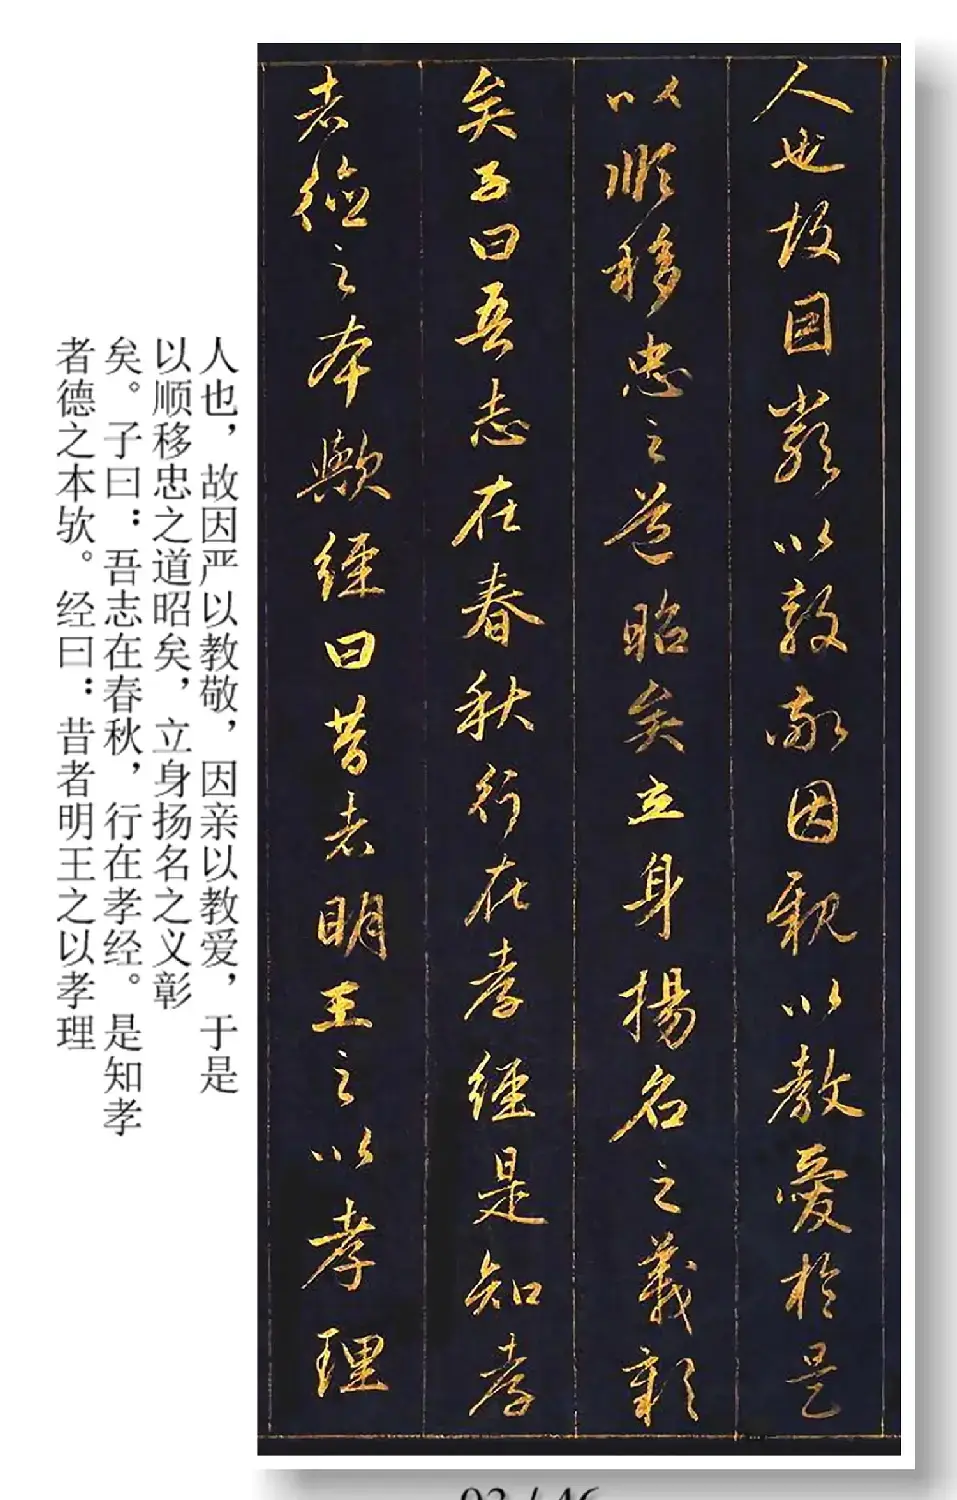 人也故因嚴以教敬因親以教愛於是
以順移忠之道昭矣立身揚名之義彰
矣子曰吾志在春秋行在孝經是知孝
者德之本歟經曰昔者明王之以孝理
人也，故因严以教敬，因亲以教爱，于是
以顺移忠之道昭矣，立身扬名之义彰
矣。子曰：吾志在春秋，行在孝经。是知孝
者德之本欤。经曰：昔者明王之以孝理